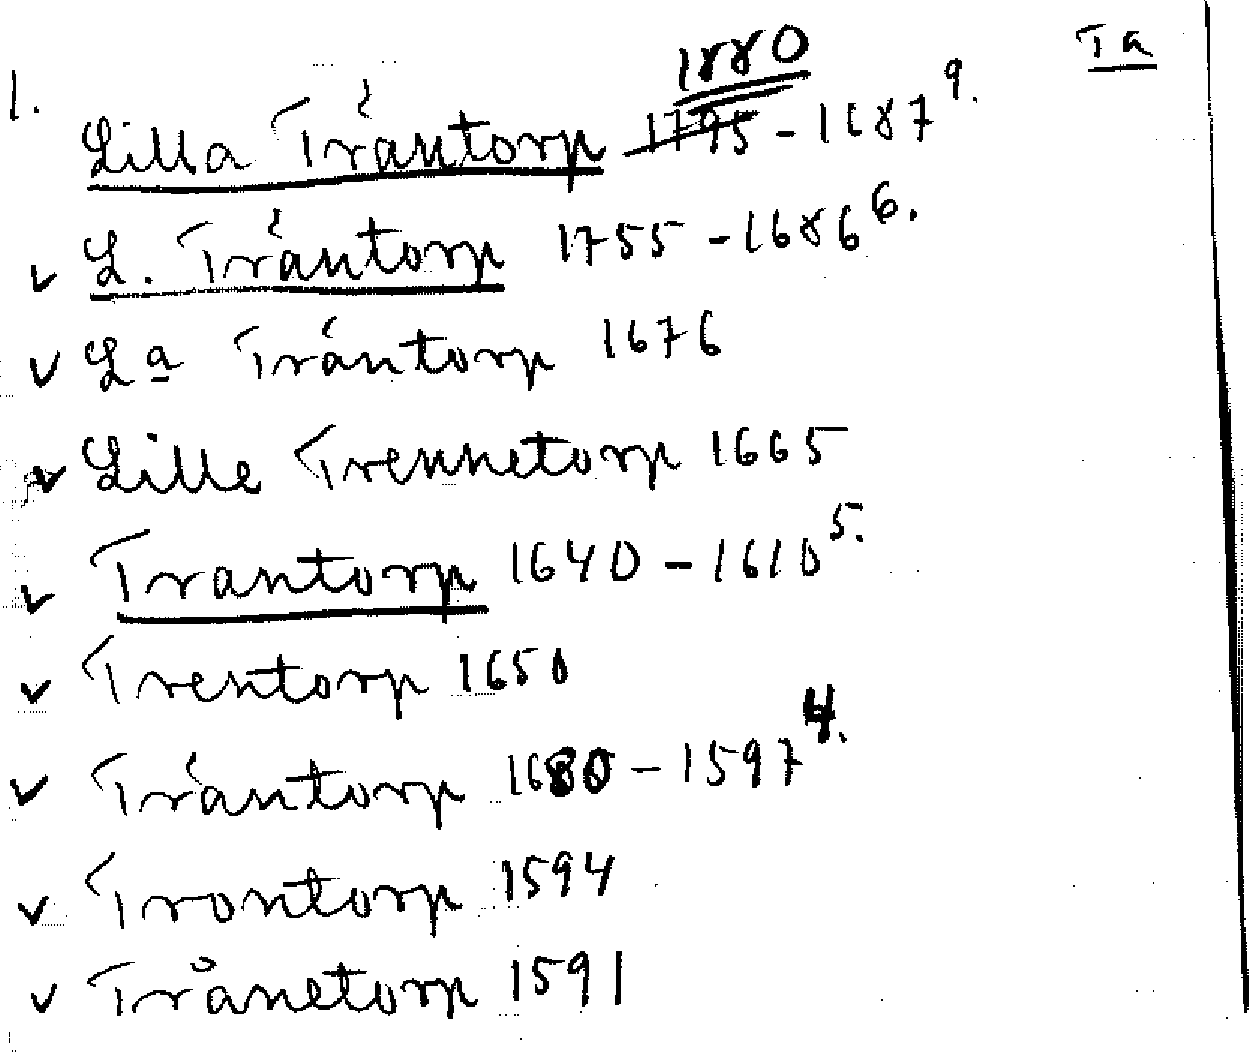 Ta
1.
1880
Lilla Tråntorp 1795-1687 9.
v L. Tråntorp 1755-1686 6.
v La Tråntorp 1676
v Lille Trennetorp 1665
v Trantorp 1640-1610 5.
v Trentorp 1650
v Tråntorp 1680-1597 4.
v Trontorp 1594
v Trånetorp 1591